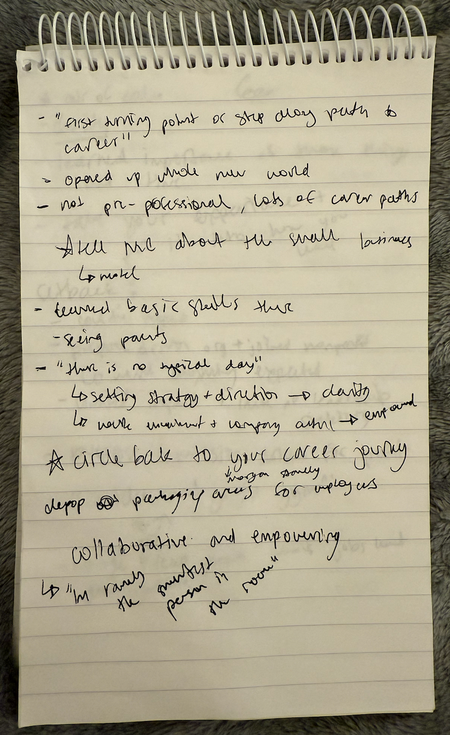 - "first turning point or step along path to
career"
- opened up whole new world
- not pre-professional, lots of career paths
☆ tell me about the small business
↳ model
- learned basic skills there
- seeing
- "there is no typical day"
↳ setting strategy + direction → clarity
↳ environment + company → empower
☆ circle back to your career journey
↳ morgan stanley
depop packaging for employees
collaborative and empowering
↳ "Im rarely
the smartest
person in
the room"